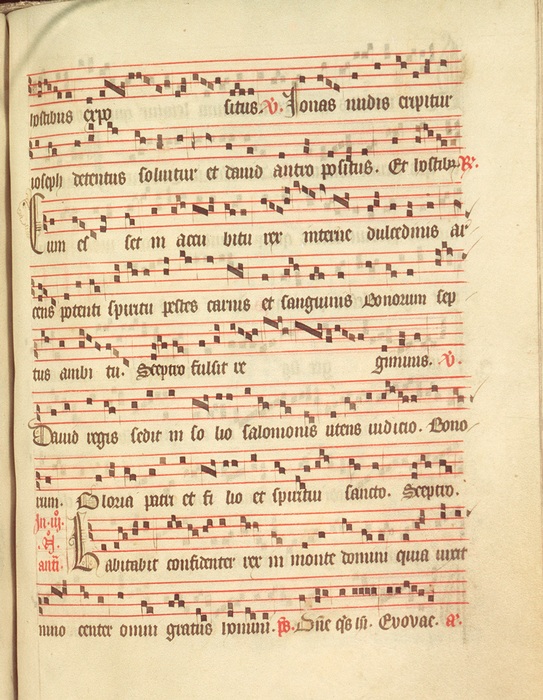 hostibus expo situs. V. Jonas nudis eripitur
ioseph detentus soluitur et dauid antro positus. Et hostib9 R.
Cum es set in accu bitu rex interne dulcedinis ar
cens potenti spiritu pestes carnis et sanguinis Bonorum sep
tus ambi tu. Sceptro fulsit re giminis. V.
Dauid regis sedit in so lio salomonis utens iudicio. Bono
rum. Gloria patri et fi lio et spiritui sancto. Sceptro.
In iij.
N.
anti.
Habitabit confidenter rex in monte domini quia uixit
inno center omni gratus homini. ps. Dne qis in. Evovae. a.